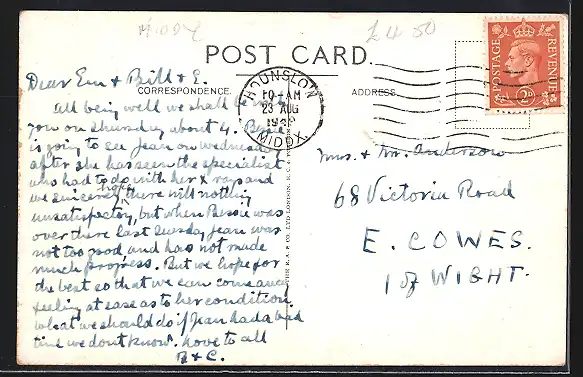 MIDDX
£4.50
POST CARD.
CORRESPONDENCE.
ADDRESS
HOUNSLOW
10-AM
23 AUG
MIDDX.
POSTAGE
REVENUE
Dear Em & Bill & E.
All being well we shall be
you on thursday about 4. Bessie
is going to see Jean on wednesday
after she has seen the specialist
who had to do with her X rays and
we sincerely hope there will nothing
unsatisfactory, but when Bessie was
over there last Tuesday Jean was
not too good, and has not made
much progress. But we hope for
the best so that we can come away
feeling at ease as to her condition.
What we should do if Jean had a bad
time we dont know. Love to all
B & C.
Mrs. & Mr. Anderson
68 Victoria Road
E. COWES.
I of WIGHT.
LTD LONDON.